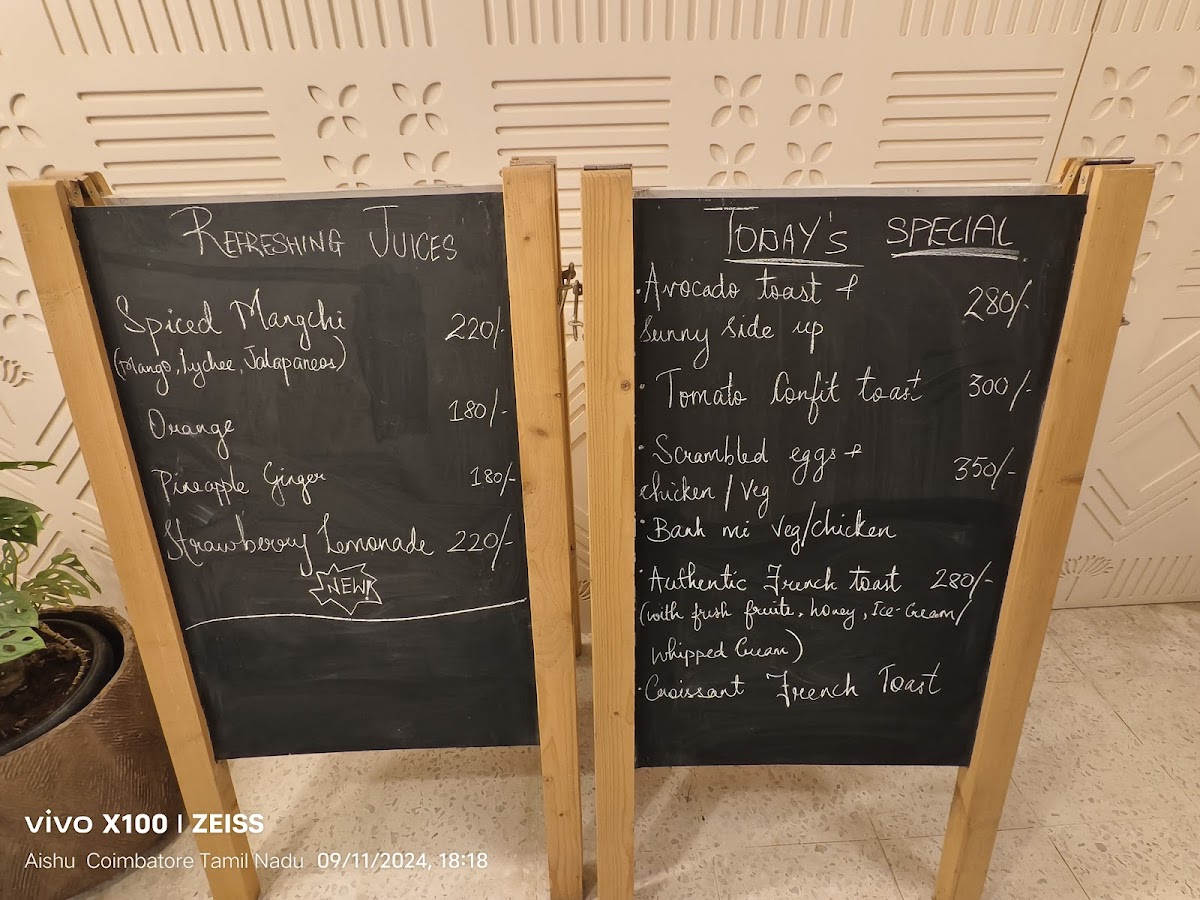 REFRESHING JUICES
Spiced Mangchi 220/-
(Mango, Lychee, Jalapaneos)
Orange 180/-
Pineapple Ginger 180/-
Strawberry Lemonade 220/-
NEW!
TODAY'S SPECIAL
·Avocado toast & 280/-
Sunny Side up
· Tomato Confit toast 300/-
· Scrambled eggs & 350/-
chicken / Veg
· Banh mi Veg/chicken
· Authentic French toast 280/-
(with fresh fruits, honey, Ice-Cream/
Whipped Cream)
· Croissant French Toast
vivo X100 | ZEISS
Aishu Coimbatore Tamil Nadu 09/11/2024, 18:18